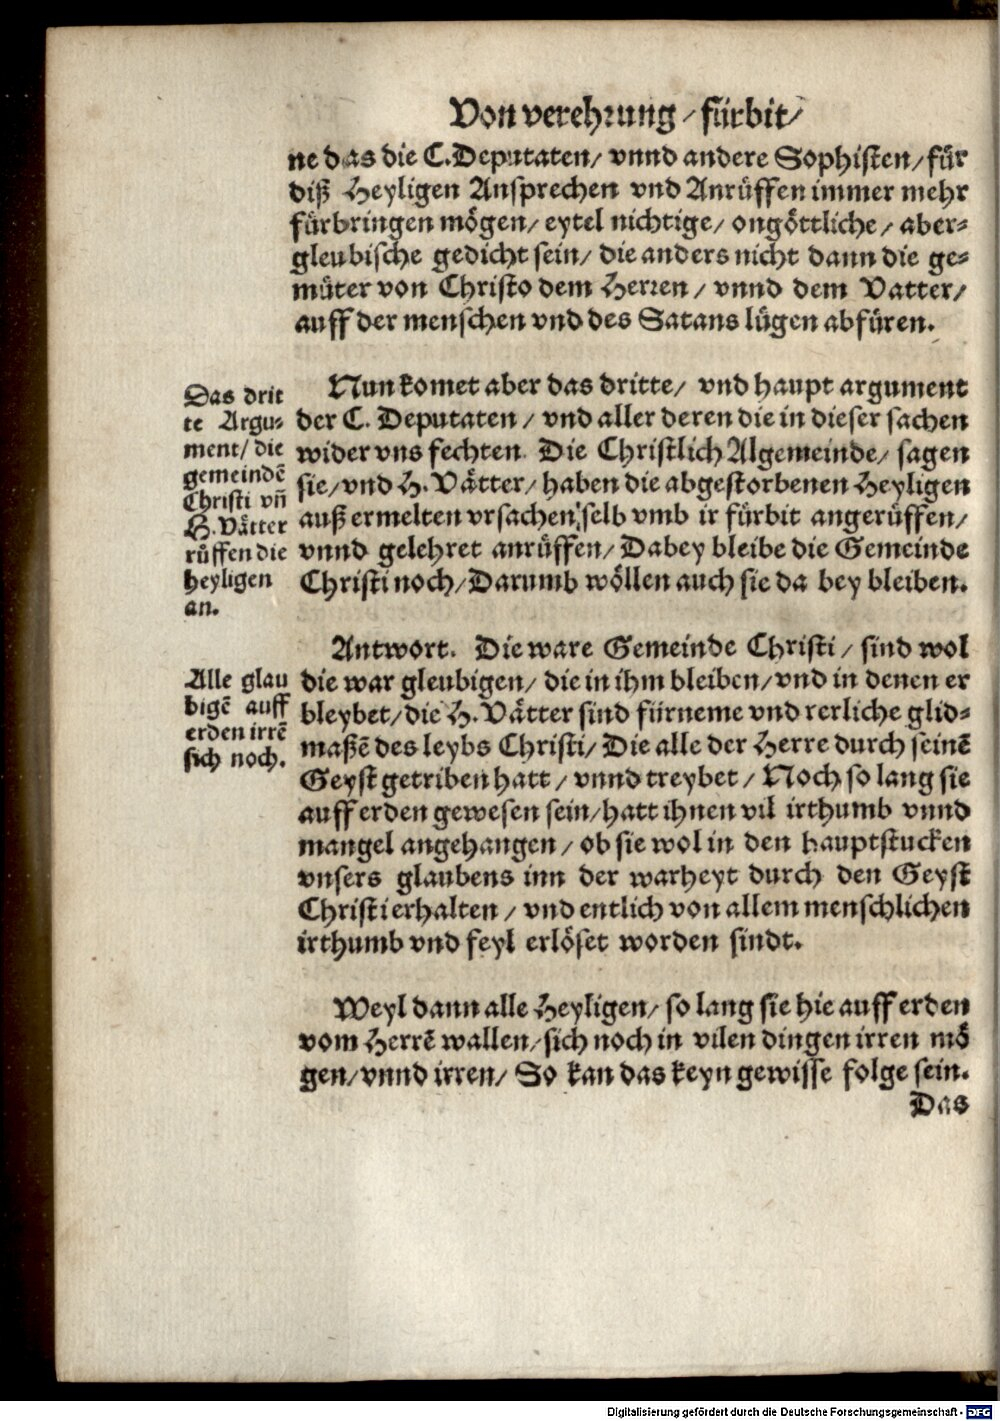 Von verehrung / fürbit/
ne das die C.Deputaten/ vnnd andere Sophisten/ für
diß Heyligen Ansprechen vnd Anrüffen immer mehr
fürbringen mögen/ eytel nichtige/ ongöttliche/ aber-
gleubische gedicht sein/ die anders nicht dann die ge-
müter von Christo dem Herren/ vnnd dem Vatter/
auff der menschen vnd des Satans lügen abfüren.
Das drit
te Argu-
ment/ die
gemeindē
Christi vn̄
H. Vätter
rüffen die
heyligen
an.
Nun komet aber das dritte/ vnd haupt argument
der C. Deputaten/ vnd aller deren die in dieser sachen
wider vns fechten. Die Christlich Algemeinde/ sagen
sie/ vnd H. Vätter/ haben die abgestorbenen Heyligen
auß ermelten vrsachen, selb vmb ir fürbit angerüffen/
vnnd gelehret anrüffen/ Dabey bleibe die Gemeinde
Christi noch/ Darumb wöllen auch sie da bey bleiben.
Alle glau
bigē auff
erden irrē
sich noch.
Antwort. Die ware Gemeinde Christi/ sind wol
die war gleubigen/ die in ihm bleiben/ vnd in denen er
bleybet/ die H. Vätter sind fürneme vnd rerliche glid-
maßē des leybs Christi/ Die alle der Herre durch seinē
Geyst getriben hatt/ vnnd treybet/ Noch so lang sie
auff erden gewesen sein/ hatt ihnen vil irthumb vnnd
mangel angehangen/ ob sie wol in den hauptstucken
vnsers glaubens inn der warheyt durch den Geyst
Christi erhalten/ vnd entlich von allem menschlichen
irthumb vnd feyl erlöset worden sindt.
Weyl dann alle Heyligen/ so lang sie hie auff erden
vom Herrē wallen/ sich noch in vilen dingen irren mö
gen/ vnnd irren/ So kan das keyn gewisse folge sein.
Das
Digitalisierung gefördert durch die Deutsche Forschungsgemeinschaft - DFG